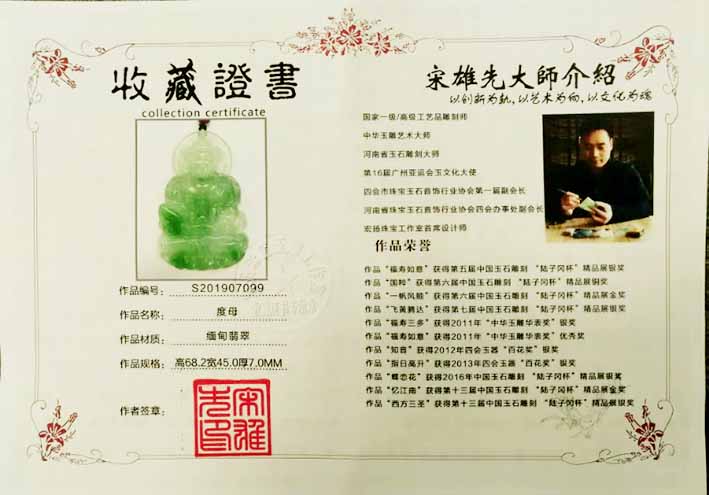 收藏證書
collection certificate
作品编号: S201907099
作品名称: 度母
作品材质: 缅甸翡翠
作品规格: 高68.2宽45.0厚7.0MM
作者签章:
宋雄先印
宋雄先大師介紹
以创新为轨,以艺术为向,以文化为魂
国家一级/高级工艺品雕刻师
中华玉雕艺术大师
河南省玉石雕刻大师
第16届广州亚运会玉文化大使
四会市珠宝玉石首饰行业协会第一届副会长
河南省珠宝玉石首饰行业协会四会办事处副会长
宏扬珠宝工作室首席设计师
作品荣誉
作品“福寿如意”获得第五届中国玉石雕刻“陆子冈杯”精品展银奖
作品“国粹”获得第六届中国玉石雕刻“陆子冈杯”精品展铜奖
作品“一帆风顺”获得第六届中国玉石雕刻“陆子冈杯”精品展金奖
作品“飞黄腾达”获得第七届中国玉石雕刻“陆子冈杯”精品展银奖
作品“福寿三多”获得2011年“中华玉雕华表奖”银奖
作品“福寿如意”获得2011年“中华玉雕华表奖”优秀奖
作品“知音”获得2012年四会玉器“百花奖”银奖
作品“指日高升”获得2013年四会玉器“百花奖”银奖
作品“蝶恋花”获得2016年中国玉石雕刻“陆子冈杯”精品展银奖
作品“忆江南”获得第十三届中国玉石雕刻“陆子冈杯”精品展金奖
作品“西方三圣”获得第十三届中国玉石雕刻“陆子冈杯”精品展银奖